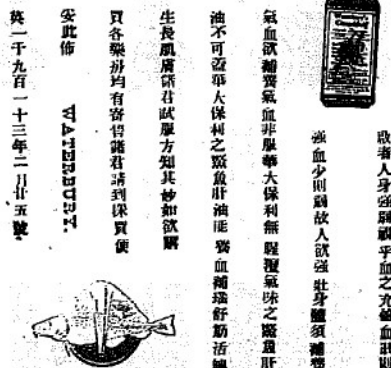 啟者人身強弱視乎血之充血壯則
強血少則弱故人欲強壯身體須補養
氣血欲補養氣血非服華大保利無腥穢氣味之鰵魚肝
油不可蓋華大保利之鰵魚肝油能養血補瑙舒筋活
生長肌膚諸君試服方知其妙如欲購
買各藥房均有寄售諸君請到採買便
妥此佈 WATERBURY.
英一千九百一十三年二月廿五號